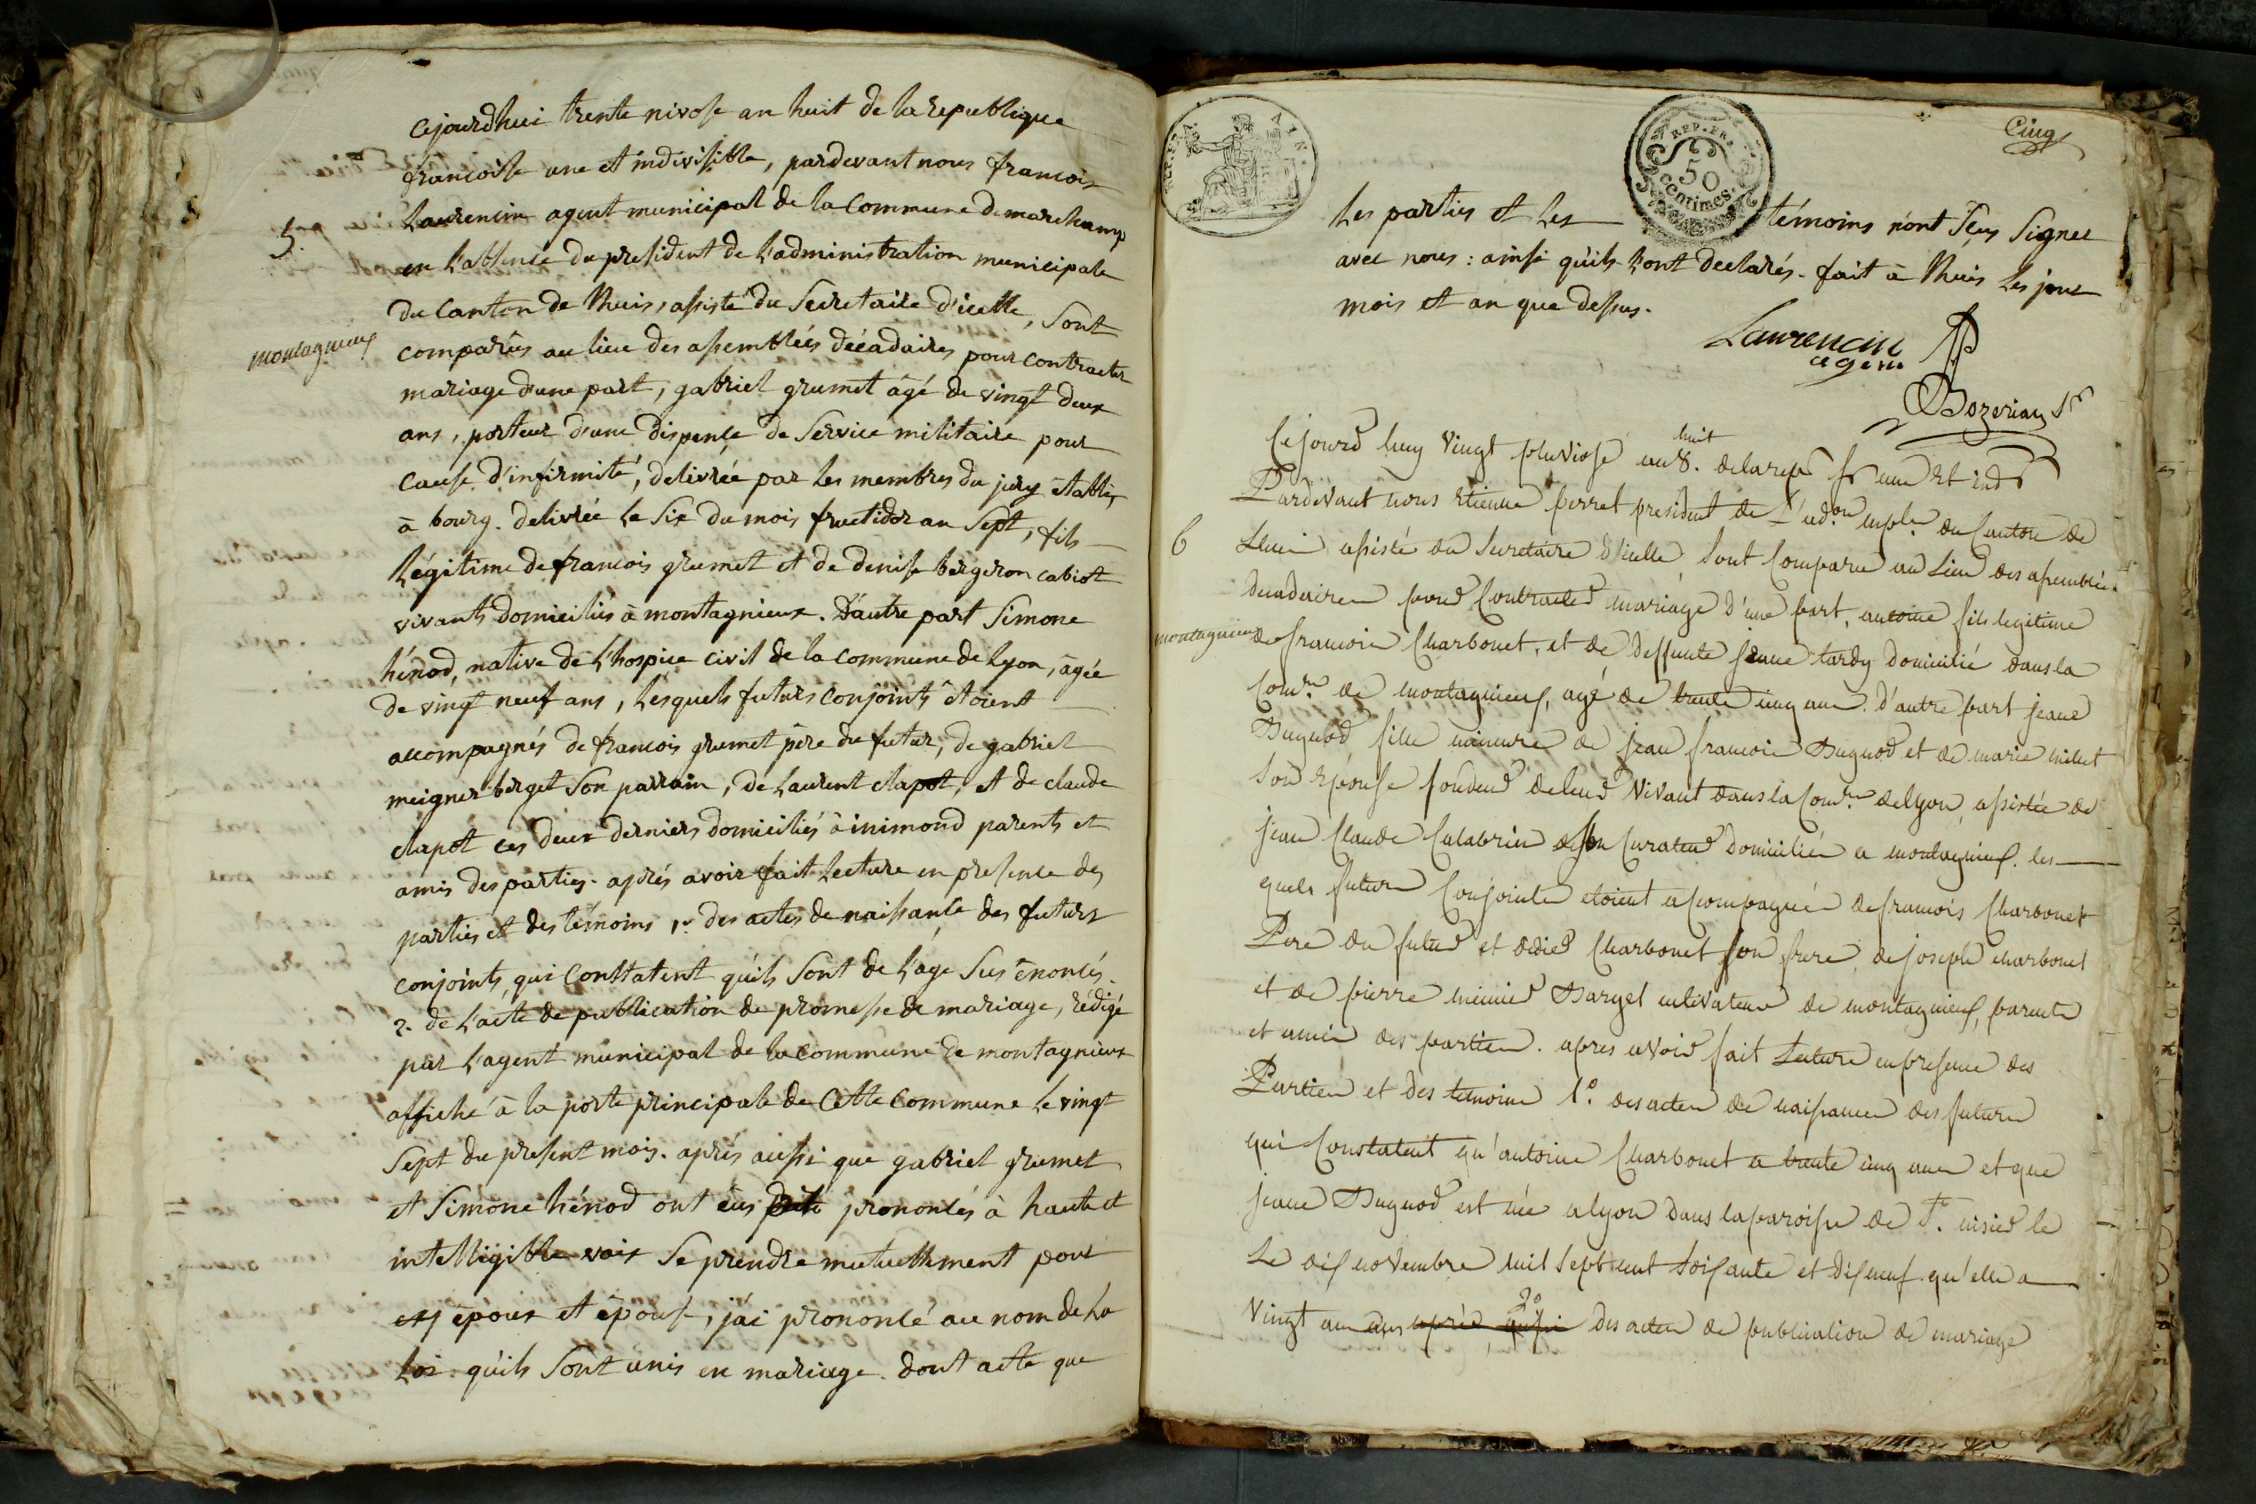 5.
montagnieux
cejourdhui trente nivose an huit de la republique
francoise une et indivisible, pardevant nous francois
Laurencin agent municipal de la Commune de marchamp
en L'absence du president de L'administration municipale
du Canton de Lhuis, assisté du Secretaire d'icelle, Sont
comparus au lieu des assemblées décadaires pour contracter
mariage d'une part, gabriel grumet âgé de vingt deux
ans, porteur d'une dispense de Service militaire pour
cause d'infirmité, delivrée par les membres du jury établis
à bourg. delivrée le Six du mois fructidor an Sept, fils
légitime de francois grumet et de denise bergeron cabiot
vivants domiciliés à montagnieux. D'autre part Simone
hénod, native de L'hospice civil de la commune de Lyon, âgée
de vingt neuf ans, Lesquels futurs conjoints étoient
accompagnés de francois grumet père du futur, de gabriel
meignier berget Son parrain, de Laurent clapot, et de claude
clapot ces deux derniers domiciliés à inimond parents et
amis des parties. après avoir fait Lecture en presence des
parties et des témoins, 1.° des actes de naissance des futurs
conjoints, qui Constatent qu'ils Sont de L'age Sus énoncés.
2. de L'acte de publication de promesse de mariage, rédigé
par L'agent municipal de la commune de montagnieux
affiché à la porte principale de Cette Commune Le vingt
Sept du present mois. après aussi que gabriel grumet
et Simone hénod ont eus prononcés à haute et
intelligible voix Se prendre mutuellement pour
époux et épouse, j'ai prononcé au nom de La
Loi. qu'ils Sont unis en mariage. dont acte que
Cinq
REP. FR.
50
Centimes.
Les parties et Les témoins n'ont Sçus Signer
avec nous: ainsi qu'ils L'ont declarés. fait à Lhuis Les jour
mois et an que dessus.
Laurencin
agent
Bozerian Sre
6
montagnieux
Cejourd huy Vingt pluviose an 8. huit delarepe fr une Et indr
Pardevant nous Etienne perret president de L'ad.on mple. du Canton de
Lhuis assisté du Secretaire d'icelle Sont Comparu au Lieu des assemblées
decadaires pour Contracter mariage d'une part, antoine fils legitime
de francois Charbonet, et de deffunte jeane tardy domicilié dans la
Com.ne de montagnieux, agé de trente cinq ans. D'autre part jeane
Dugnod fille mineure de jean francois Dugnod et de marie milet
Son Epouse de leur Vivant dans la Com.ne de lyon, assistée de
jean Claude Calabrin Curateur domicilié a montagnieux. les
quels futurs Conjoints etoient acompagnés de francois Charbonet
Pere du futur et didier Charbonet son frere, de joseph charbonet
et de pierre minier Darget cultivateurs de montagnieux, parents
et amis des parties. apres avoir fait Lecture en presence des
Parties et des temoins 1.° des actes de naissance des futurs
qui Constatent qu'antoine Charbonet a trente cinq ans et que
jeane Dugnod est née a lyon dans la paroisse de St. nisier le
Le dix novembre mil Sept cent Soixante et dixneuf qu'elle a
Vingt ans après aussi 2° des actes de publication de mariage